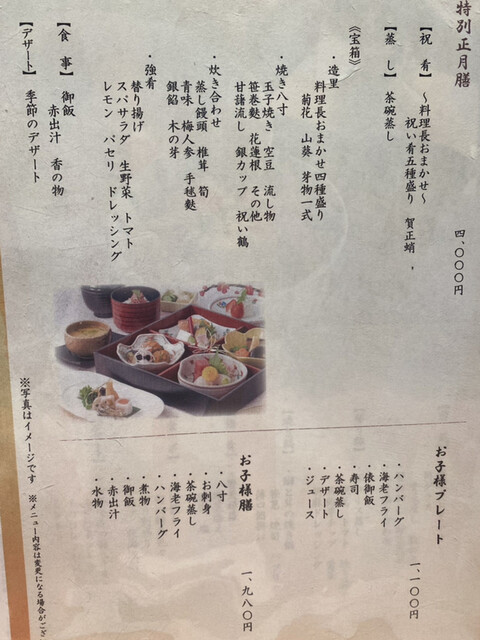 特別正月膳
四、〇〇〇円
【祝肴】 〜料理長おまかせ〜
祝い肴五種盛り 賀正蛸 ,
【蒸し】 茶碗蒸し
《宝箱》
・造里
料理長おまかせ四種盛り
菊花 山葵 芽物一式
・焼き八寸
玉子焼き 空豆 流し物
笹巻麩 花蓮根 その他
甘藷流し 銀カップ 祝い鶴
・炊き合わせ
蒸し饅頭 椎茸 筍
青味 梅人参 手毬麩
銀餡 木の芽
・強肴
替り揚げ
スパサラダ 生野菜 トマト
レモン パセリ ドレッシング
【食事】 御飯
赤出汁 香の物
【デザート】 季節のデザート
お子様プレート
一、一〇〇円
・ハンバーグ
・海老フライ
・俵御飯
・寿司
・茶碗蒸し
・デザート
・ジュース
お子様膳
一、九八〇円
・八寸
・お刺身
・茶碗蒸し
・海老フライ
・ハンバーグ
・煮物
・御飯
・赤出汁
・水物
※写真はイメージです ※メニュー内容は変更になる場合がござ